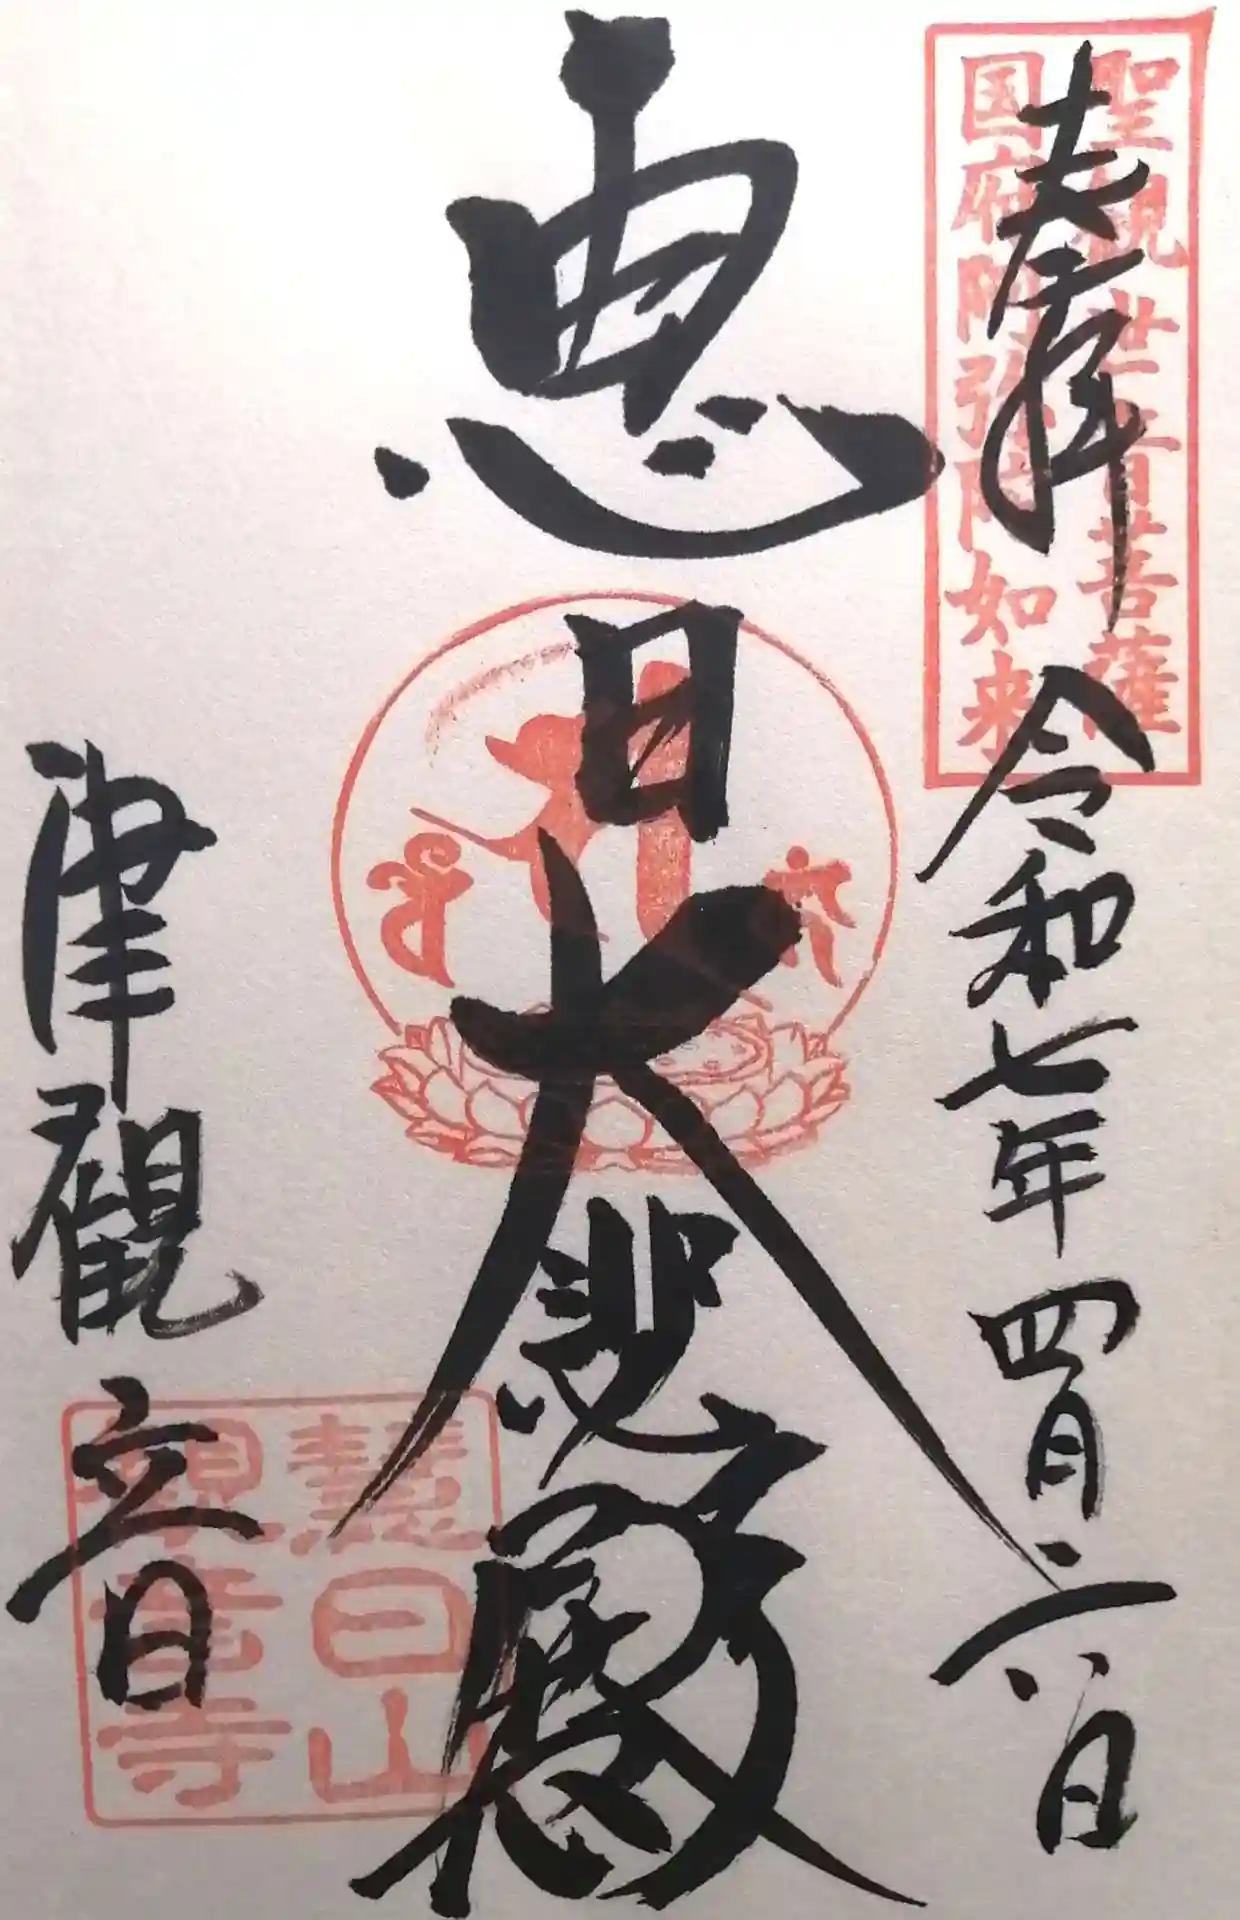 奉拝
令和七年四月二六日
聖観世音菩薩
国府阿弥陀如来
恵日大悲殿
津觀音
慧日山
観音寺